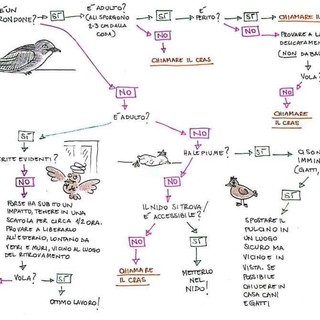 E'UN
RONDONE?
SÌ
E' ADULTO?
(ALI SPORGONO
2-3 CM DALLA
CODA)
SÌ
E'
FERITO?
SÌ
CHIAMARE IL
NO
CHIAMARE IL CRAS
NO
PROVARE A LA
DELICATAMENT
(NON DA BAL
VOLA?
NO
CHIAMARE IL
CRAS
NO
E' ADULTO?
SÌ
NO
RITE EVIDENTI?
NO
FORSE HA SUBITO UN
IMPATTO, TENERE IN UNA
SCATOLA PER CIRCA 1/2 ORA.
PROVARE A LIBERARLO
ALL'ESTERNO, LONTANO DA
VETRI E MURI, VICINO AL LUOGO
DEL RITROVAMENTO
VOLA?
SÌ
OTTIMO LAVORO!
HA LE PIUME?
SÌ
CI SON
IMMIN
(GATTI,
NO
IL NIDO SI TROVA
E' ACCESSIBILE?
NO
SÌ
CHIAMARE
IL CRAS
METTERLO
NEL
NIDO!
SÌ
SPOSTARE IL
PULCINO IN
UN LUOGO
SICURO MA
VICINO E IN
VISTA. SE
POSSIBILE
CHIUDERE IN
CASA CANI
E GATTI